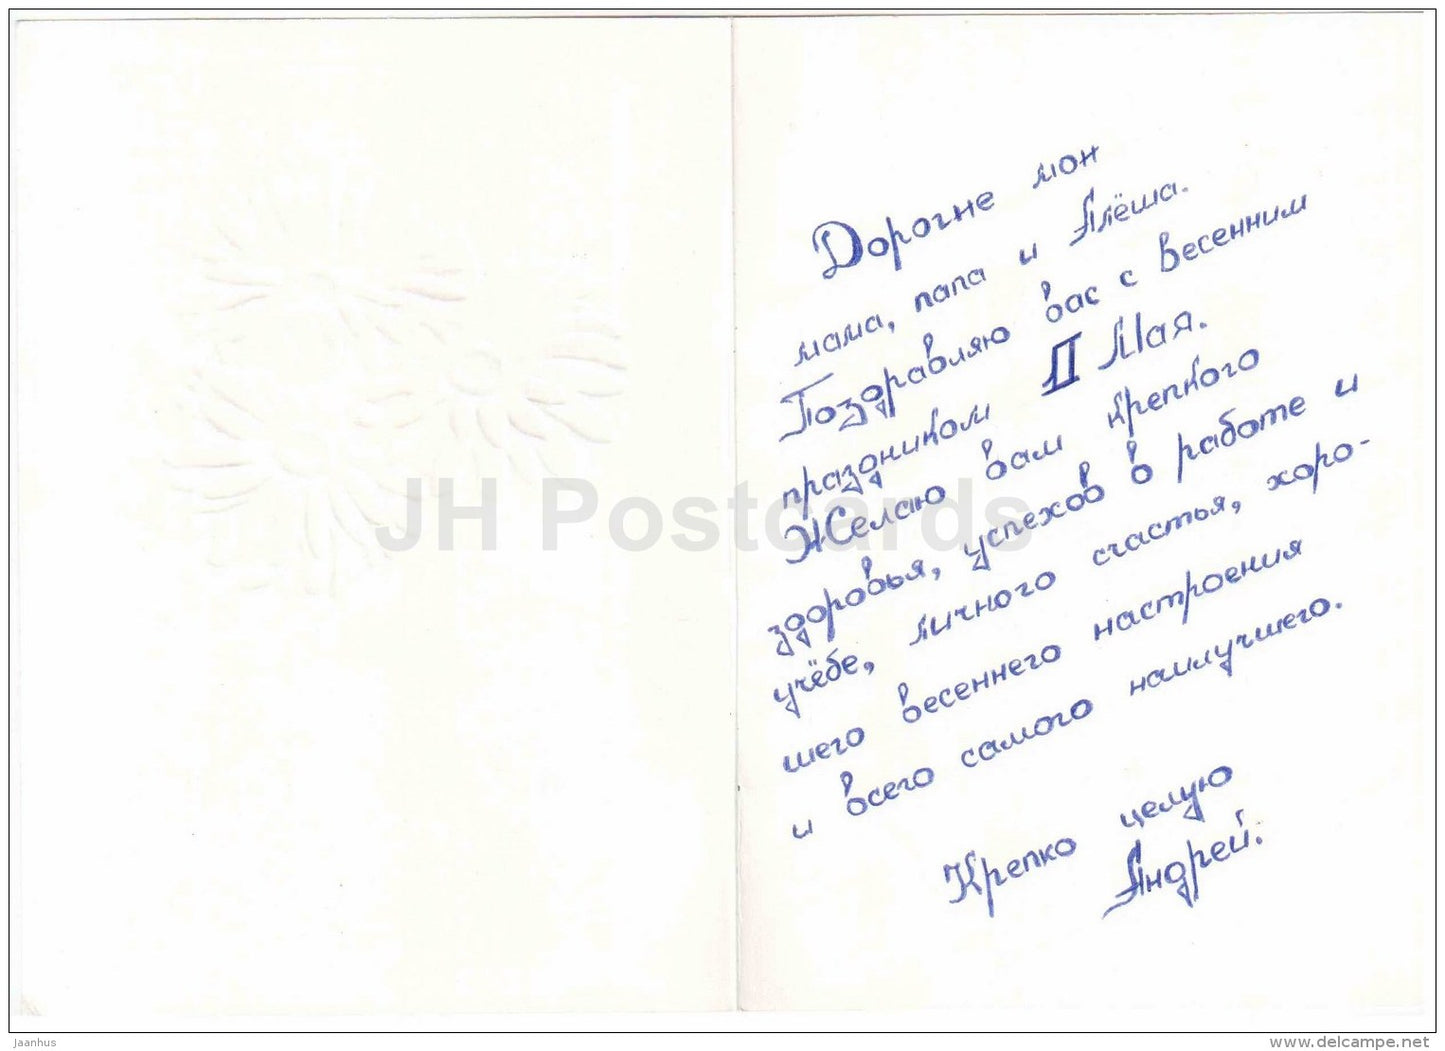 Дорогие мои
мама, папа и Алёша.
Поздравляю вас с весенним
праздником 1 Мая.
Желаю вам крепкого
здоровья, успехов в работе и
учёбе, личного счастья, хоро-
шего весеннего настроения
и всего самого наилучшего.
Крепко целую
Андрей.
JH Postcards
jaanhus
www.delcampe.net